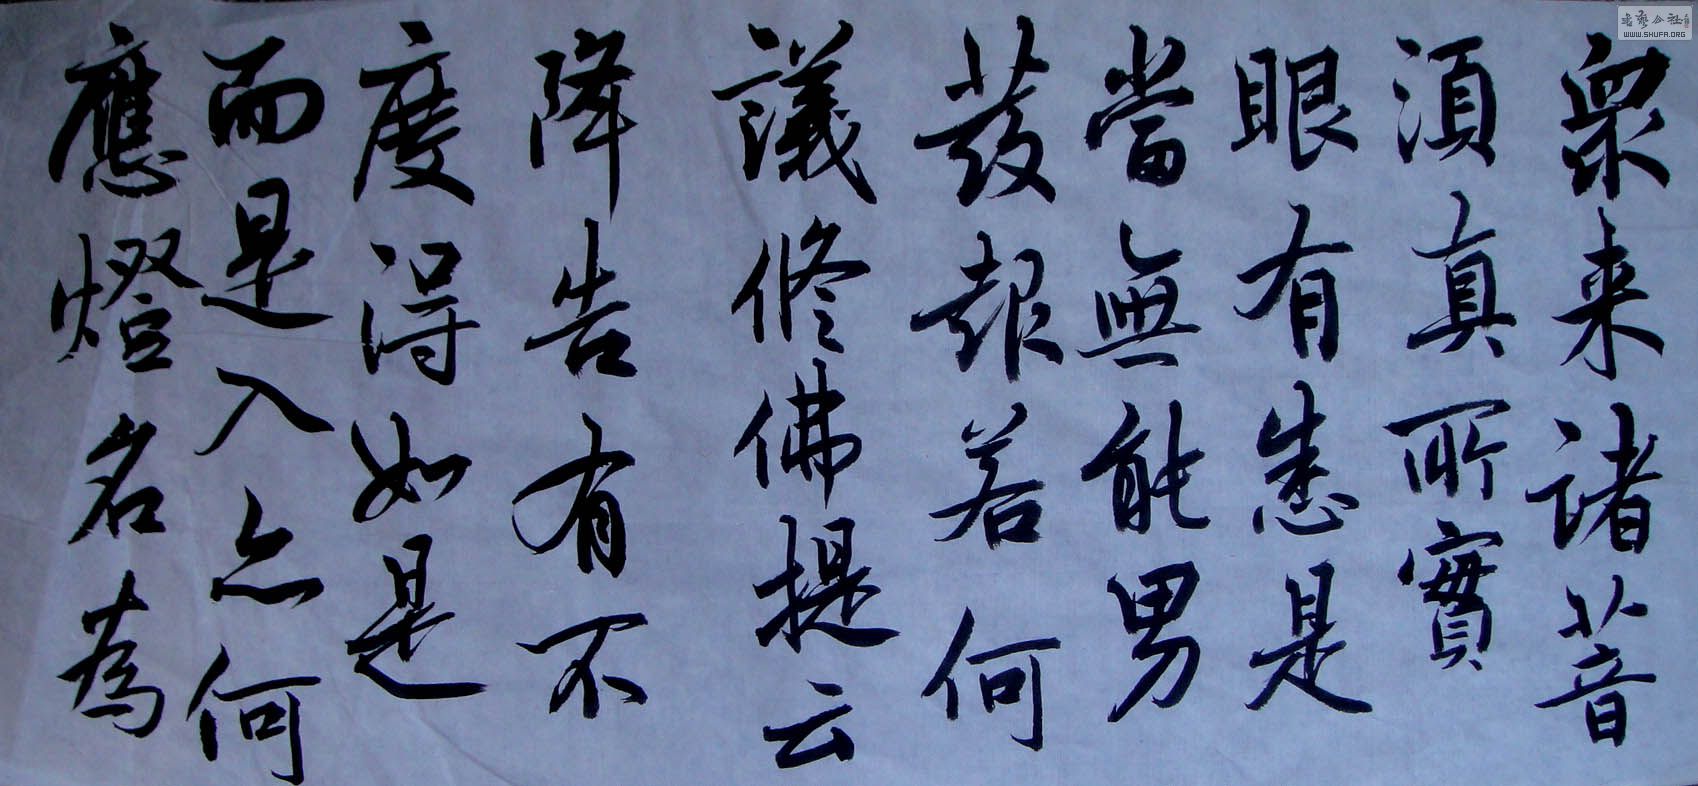 衆来諸菩
須真所實
眼有悉是
當無能男
發報若何
議修佛提云
降告有不
度得如是
而是入亦何
應燈名為
WWW.SHUFA.ORG